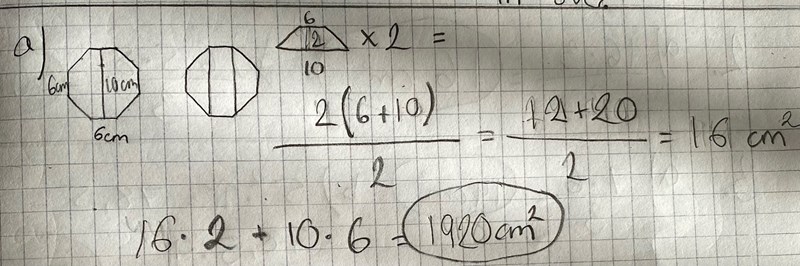 a)
6cm 10cm
6cm
6
2 × 2 =
10
2(6+10) / 2 = 12+20 / 2 = 16 cm²
16 · 2 + 10 · 6 = 1920cm²